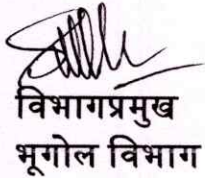 विभागप्रमुख
भूगोल विभाग